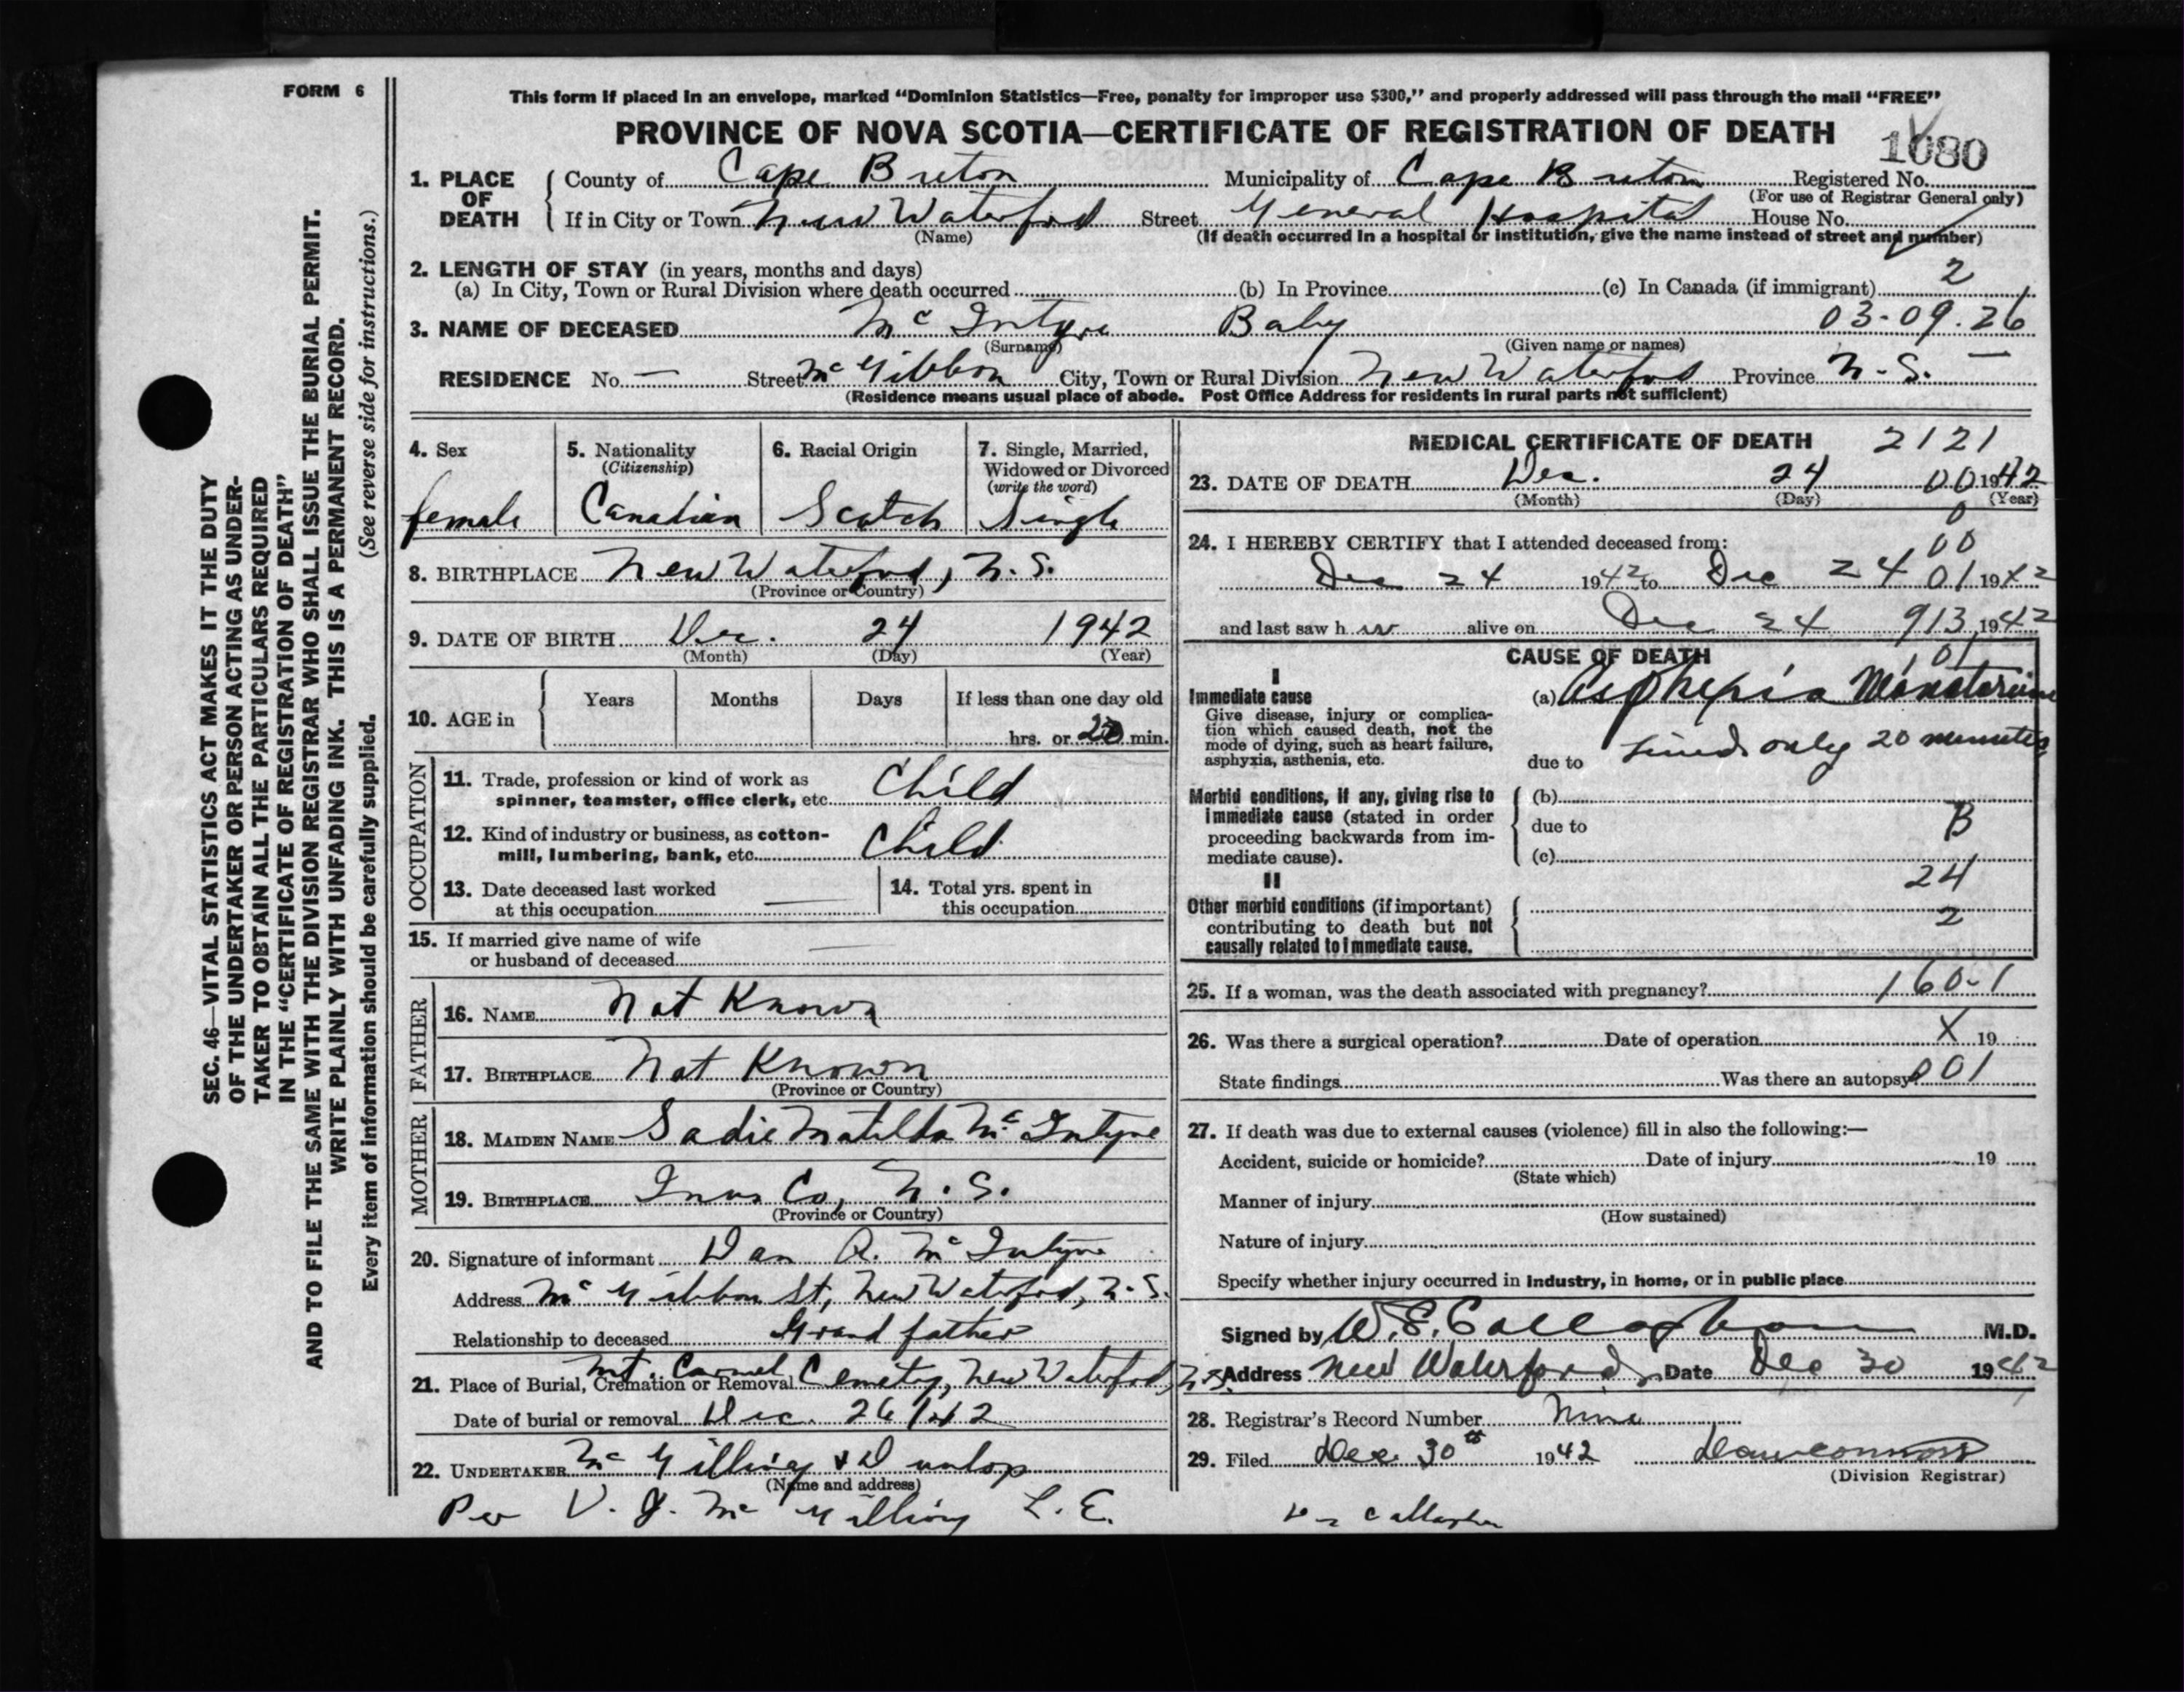 FORM 6
SEC. 46—VITAL STATISTICS ACT MAKES IT THE DUTY
OF THE UNDERTAKER OR PERSON ACTING AS UNDER-
TAKER TO OBTAIN ALL THE PARTICULARS REQUIRED
IN THE "CERTIFICATE OF REGISTRATION OF DEATH"
AND TO FILE THE SAME WITH THE DIVISION REGISTRAR WHO SHALL ISSUE THE BURIAL PERMIT.
WRITE PLAINLY WITH UNFADING INK. THIS IS A PERMANENT RECORD.
Every item of information should be carefully supplied. (See reverse side for instructions.)
This form if placed in an envelope, marked "Dominion Statistics—Free, penalty for improper use $300," and properly addressed will pass through the mail "FREE"
PROVINCE OF NOVA SCOTIA—CERTIFICATE OF REGISTRATION OF DEATH 1080
1. PLACE OF DEATH County of Cape Breton Municipality of Cape Breton Registered No.
(For use of Registrar General only)
If in City or Town New Waterford Street General Hospital House No.
(Name) (If death occurred in a hospital or institution, give the name instead of street and number)
2. LENGTH OF STAY (in years, months and days)
(a) In City, Town or Rural Division where death occurred (b) In Province (c) In Canada (if immigrant) 2
3. NAME OF DECEASED McIntyre Baby 03-09.26
(Surname) (Given name or names)
RESIDENCE No. — Street McGibbon City, Town or Rural Division New Waterford Province N.S. —
(Residence means usual place of abode. Post Office Address for residents in rural parts not sufficient)
4. Sex 5. Nationality (Citizenship) 6. Racial Origin 7. Single, Married, Widowed or Divorced (write the word)
female Canadian Scotch Single
8. BIRTHPLACE New Waterford, N.S.
(Province or Country)
9. DATE OF BIRTH Dec. 24 1942
(Month) (Day) (Year)
10. AGE in Years Months Days If less than one day old
hrs. or 20 min.
OCCUPATION
11. Trade, profession or kind of work as
spinner, teamster, office clerk, etc. Child
12. Kind of industry or business, as cotton-
mill, lumbering, bank, etc. Child
13. Date deceased last worked
at this occupation —
14. Total yrs. spent in
this occupation
15. If married give name of wife
or husband of deceased —
FATHER
16. NAME Not Known
17. BIRTHPLACE Not Known
(Province or Country)
MOTHER
18. MAIDEN NAME Sadie Matilda McIntyre
19. BIRTHPLACE Inver Co, N.S.
(Province or Country)
20. Signature of informant Dan A. McIntyre
Address McGibbon St, New Waterford, N.S.
Relationship to deceased Grand father
21. Place of Burial, Cremation or Removal Mt. Carmel Cemetery, New Waterford, N.S.
Date of burial or removal Dec. 26/42
22. UNDERTAKER McGillivray & Dunlop
(Name and address)
Per V. J. McGillivray L.E.
MEDICAL CERTIFICATE OF DEATH 2121
23. DATE OF DEATH Dec. 24 00 1942
(Month) (Day) (Year)
0
24. I HEREBY CERTIFY that I attended deceased from: 00
Dec 24 1942 to Dec 24 01 1942
and last saw h er alive on Dec 24 913 1942
CAUSE OF DEATH 101
I
Immediate cause
Give disease, injury or complica-
tion which caused death, not the
mode of dying, such as heart failure,
asphyxia, asthenia, etc.
(a)
due to Lived only 20 minutes
Morbid conditions, if any, giving rise to
immediate cause (stated in order
proceeding backwards from im-
mediate cause).
(b)
due to B
(c)
24
II
Other morbid conditions (if important)
contributing to death but not
causally related to immediate cause.
2
25. If a woman, was the death associated with pregnancy? 160-1
26. Was there a surgical operation? Date of operation X 19
State findings Was there an autopsy? 001
27. If death was due to external causes (violence) fill in also the following:—
Accident, suicide or homicide? Date of injury 19
(State which)
Manner of injury
(How sustained)
Nature of injury
Specify whether injury occurred in industry, in home, or in public place
Signed by W. E. Callaghan M.D.
Address New Waterford Date Dec 30 1942
28. Registrar's Record Number Nine
29. Filed Dec 30th 1942
(Division Registrar)